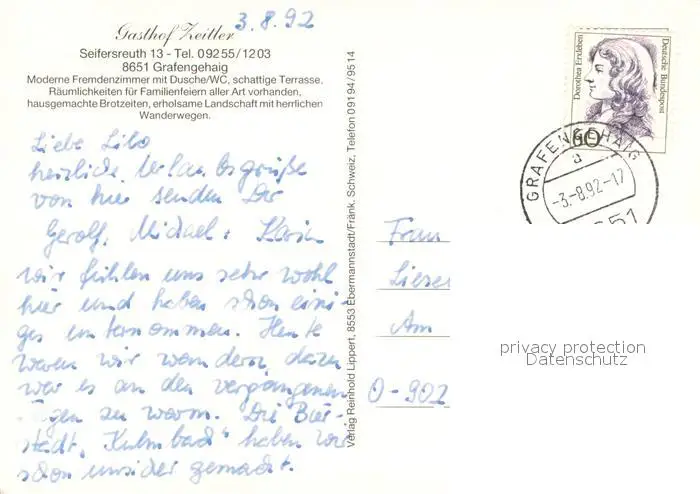 3.8.92
Gasthof Zeitler
Seifersreuth 13 - Tel. 09255/1203
8651 Grafengehaig
Moderne Fremdenzimmer mit Dusche/WC, schattige Terrasse,
Räumlichkeiten für Familienfeiern aller Art vorhanden,
hausgemachte Brotzeiten, erholsame Landschaft mit herrlichen
Wanderwegen.
Liebe Lilo
herzliche Urlaubsgrüße
von hier senden Dir
Gerolf, Michael + Karin
wir fühlen uns sehr wohl
hier und haben schon eini-
ges unternommen. Heute
waren wir wandern, dazu
war es an den vergangenen
Tagen zu warm. Die Bier-
stadt "Kulmbach" haben wir
schon unsicher gemacht.
Verlag Reinhold Lippert, 8553 Ebermannstadt/Fränk. Schweiz, Telefon 09194/9514
Dorothea Erxleben
Deutsche Bundespost
60
GRAFENGEHAIG
a
-3.-8.92-17
8651
Frau
Liese
Am
O-902
privacy protection
Datenschutz